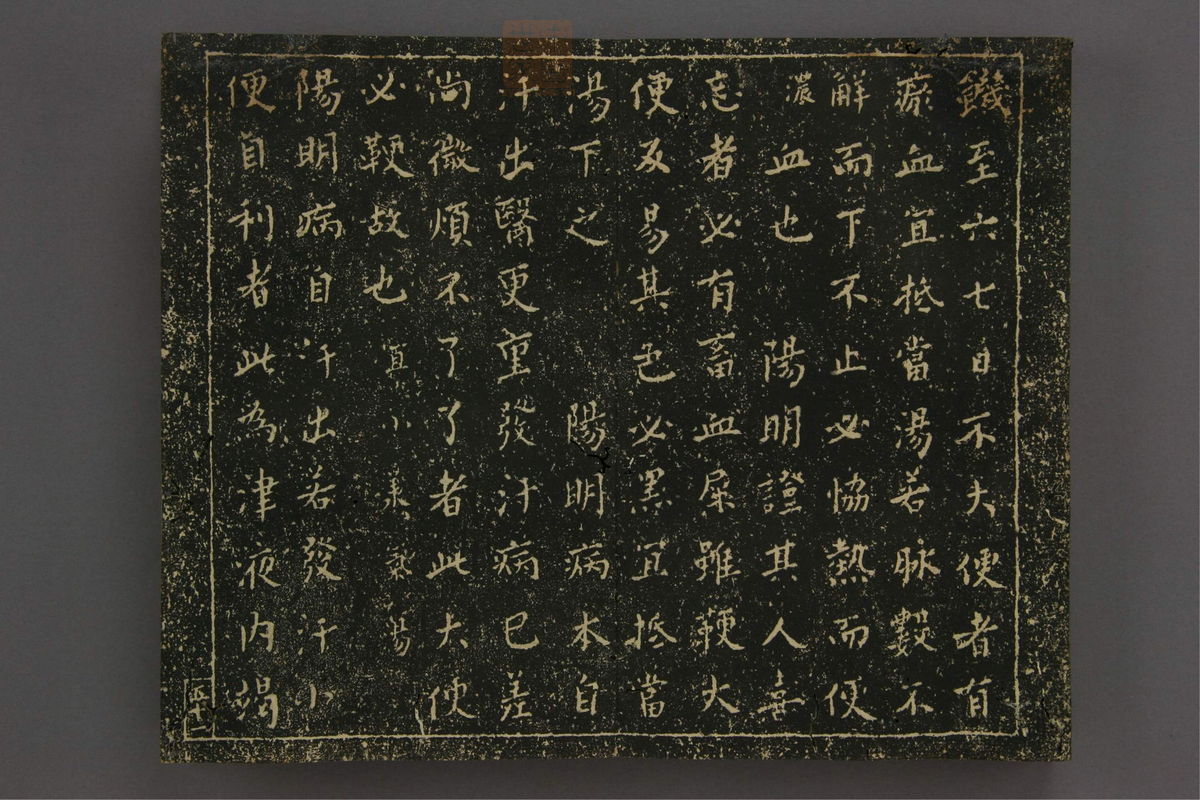 饑至六七日不大便者有
瘀血宜抵當湯若脉數不
解而下不止必恊熱而便
濃血也 陽明證其人喜
忘者必有畜血屎雖鞕大
便反易其色必黑宜抵當
湯下之 陽明病本自
汗出醫更重發汗病已差
尚微煩不了了者此大便
必鞕故也 宜小氣湯
陽明病自汗出若發汗小
便自利者此為津液内竭